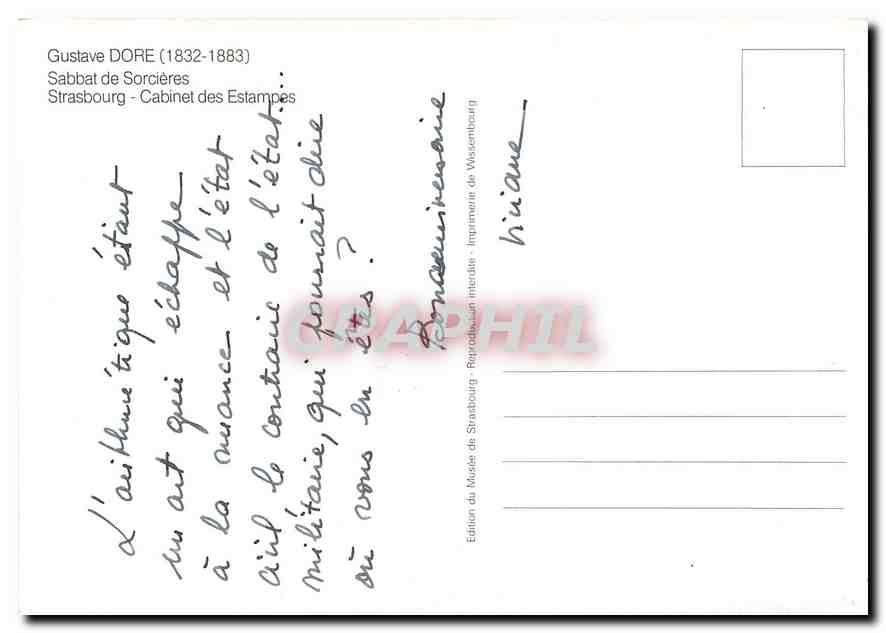 Gustave DORE (1832-1883)
Sabbat de Sorcières
Strasbourg - Cabinet des Estampes
L'arithmétique étant
un art qui échappe
à la nuance et l'état
civil le contraire de l'état....
militaire, qui pourrait dire
où vous en êtes ?
Bonanniversaire
Viviane
Edition du Musée de Strasbourg - Reproduction interdite - Imprimerie de Wissembourg
CPAPHIL